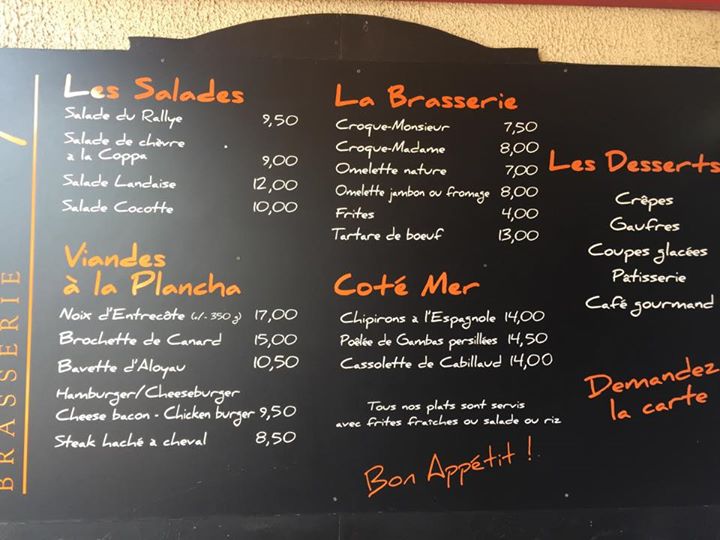 BRASSERIE
Les Salades
Salade du Rallye 9,50
Salade de chèvre
à la Coppa 9,00
Salade Landaise 12,00
Salade Cocotte 10,00
Viandes
à la Plancha
Noix d'Entrecôte (+/- 350 g) 17,00
Brochette de Canard 15,00
Bavette d'Aloyau 10,50
Hamburger/Cheeseburger
Cheese bacon - Chicken burger 9,50
Steak haché à cheval 8,50
La Brasserie
Croque-Monsieur 7,50
Croque-Madame 8,00
Omelette nature 7,00
Omelette jambon ou fromage 8,00
Frites 4,00
Tartare de boeuf 13,00
Coté Mer
Chipirons à l'Espagnole 14,00
Poêlée de Gambas persillées 14,50
Cassolette de Cabillaud 14,00
Tous nos plats sont servis
avec frites fraîches ou salade ou riz
Bon Appétit !
Les Desserts
Crêpes
Gaufres
Coupes glacées
Patisserie
Café gourmand
Demandez
la carte